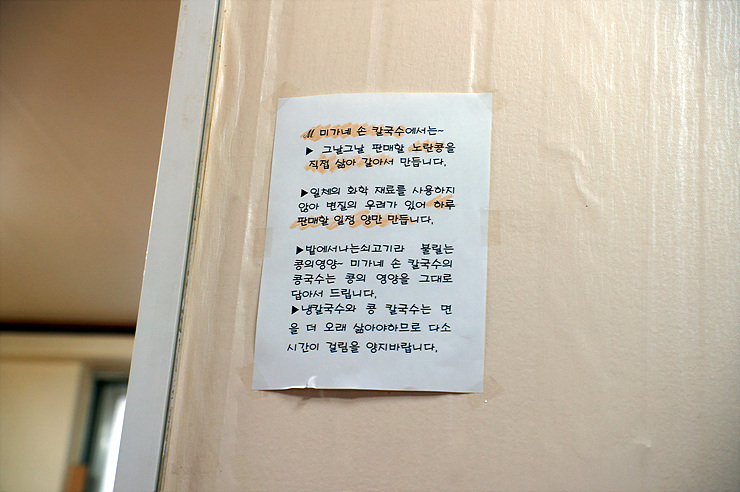 M 미가네 손 칼국수에서는~
▶ 그날그날 판매할 노란콩을
직접 삶아 갈아서 만듭니다.
▶일체의 화학 재료를 사용하지
않아 변질의 우려가 있어 하루
판매할 일정 양만 만듭니다.
▶밭에서나는쇠고기라 불릴는
콩의영양~ 미가네 손 칼국수의
콩국수는 콩의 영양을 그대로
담아서 드립니다.
▶냉칼국수와 콩 칼국수는 면
을 더 오래 삶아야하므로 다소
시간이 걸림을 양지바랍니다.